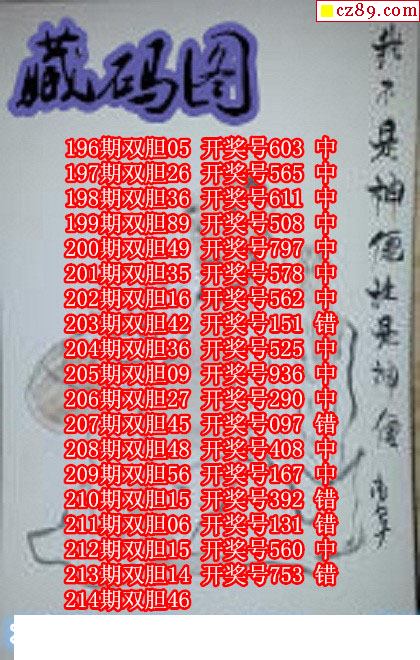 cz89.com
藏码图
196期双胆05 开奖号603 中
197期双胆26 开奖号565 中
198期双胆36 开奖号611 中
199期双胆89 开奖号508 中
200期双胆49 开奖号797 中
201期双胆35 开奖号578 中
202期双胆16 开奖号562 中
203期双胆42 开奖号151 错
204期双胆36 开奖号525 中
205期双胆09 开奖号936 中
206期双胆27 开奖号290 中
207期双胆45 开奖号097 错
208期双胆48 开奖号408 中
209期双胆56 开奖号167 中
210期双胆15 开奖号392 错
211期双胆06 开奖号131 错
212期双胆15 开奖号560 中
213期双胆14 开奖号753 错
214期双胆46
我不是神
是神